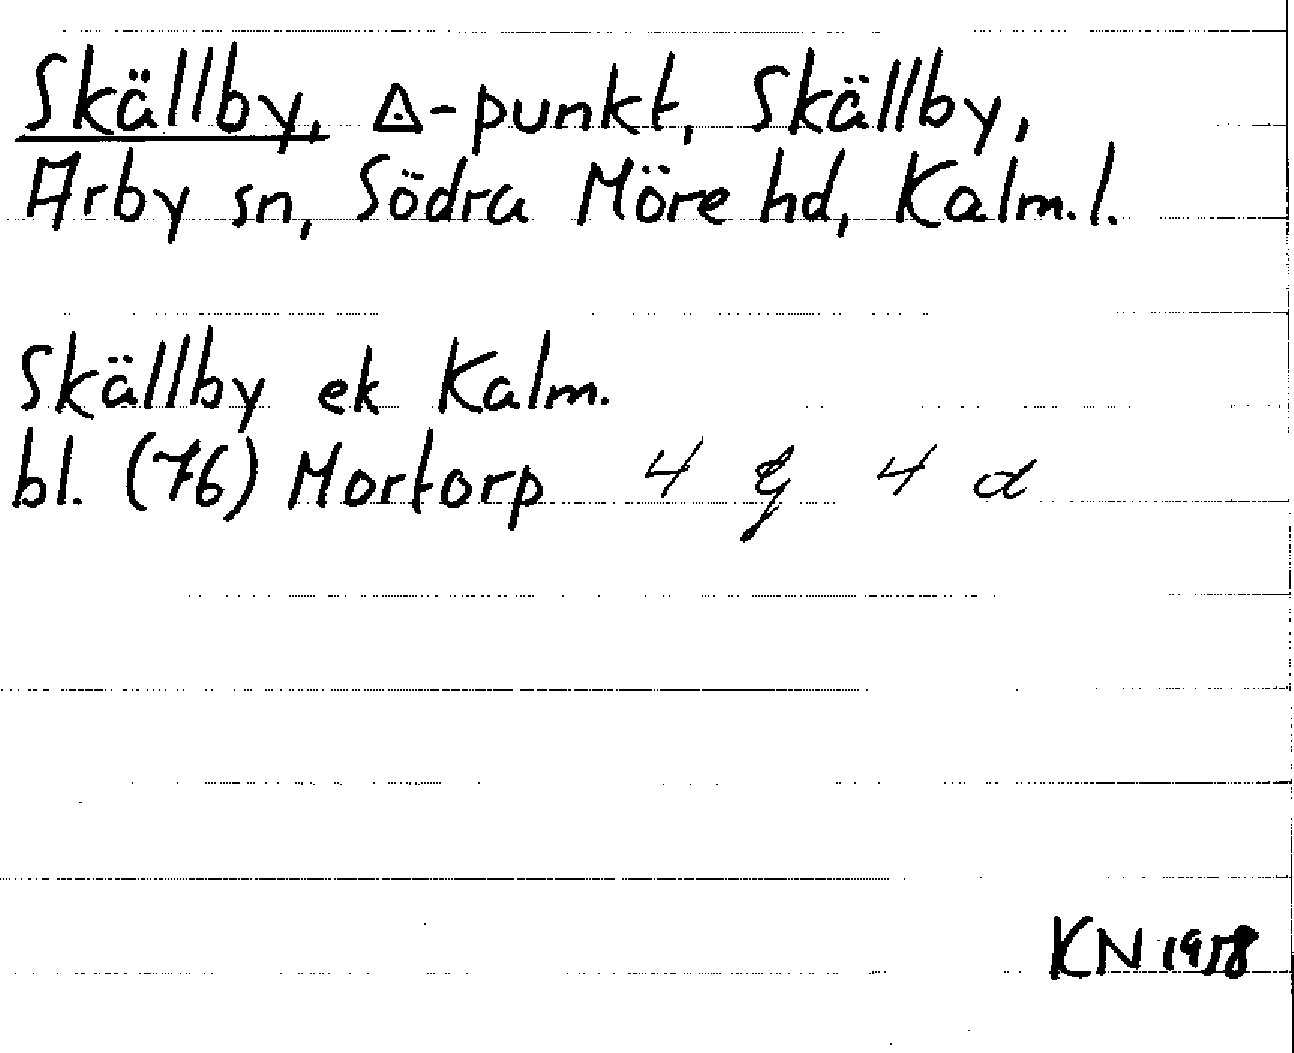 Skällby, △-punkt, Skällby,
Arby sn, Södra Möre hd, Kalm. l.
Skällby ek Kalm.
bl. (76) Mortorp 4 g 4 d
KN 1958